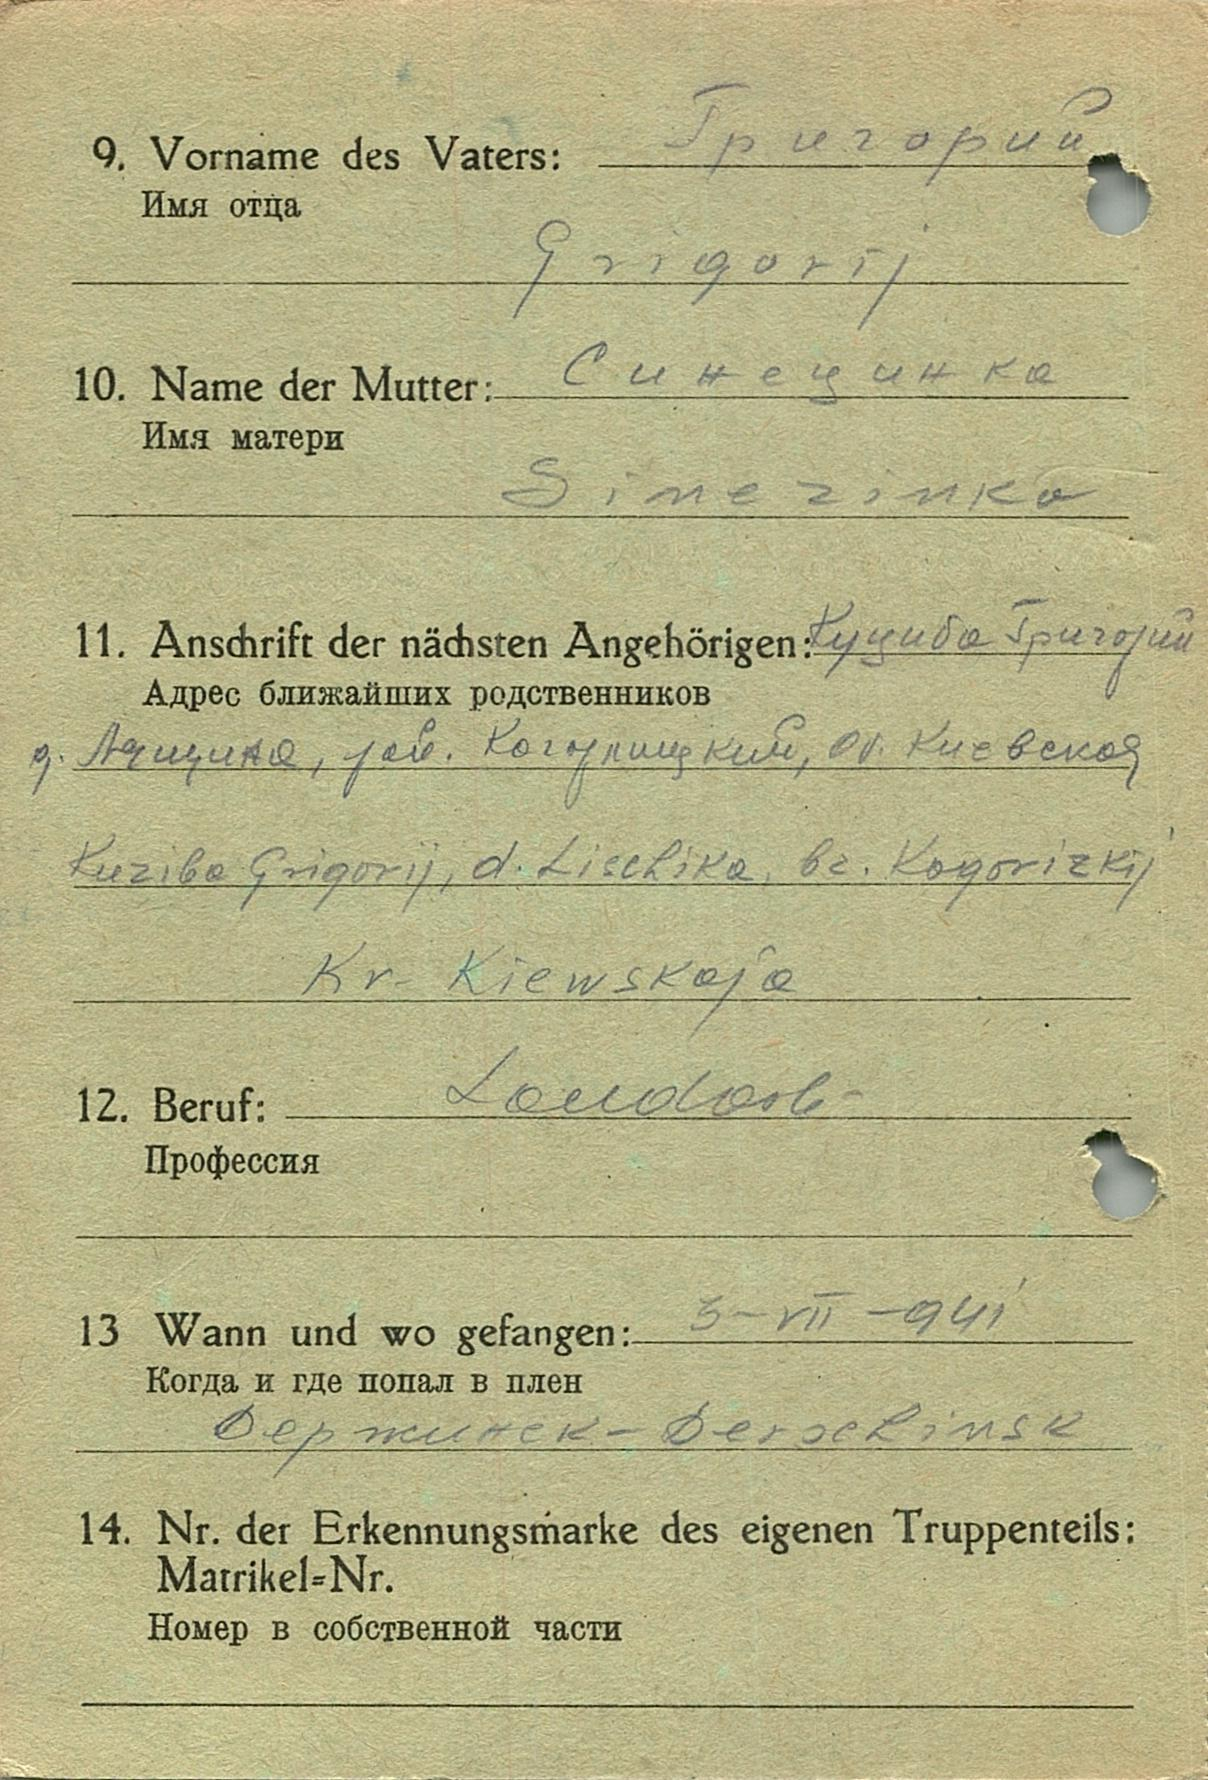 9. Vorname des Vaters: Григорий
Имя отца
Grigorij
10. Name der Mutter: Синецинка
Имя матери
Sinezinka
11. Anschrift der nächsten Angehörigen: Куциба Григорий
Адрес ближайших родственников
д. рай. Киевская
Kuziba Grigorij, d. Lischika, bz. Kagorizkij
Kr- Kiewskaja
12. Beruf:
Профессия
13 Wann und wo gefangen: 3-VII-941
Когда и где попал в плен
Держинск- Derschinsk
14. Nr. der Erkennungsmarke des eigenen Truppenteils:
Matrikel=Nr.
Номер в собственной части